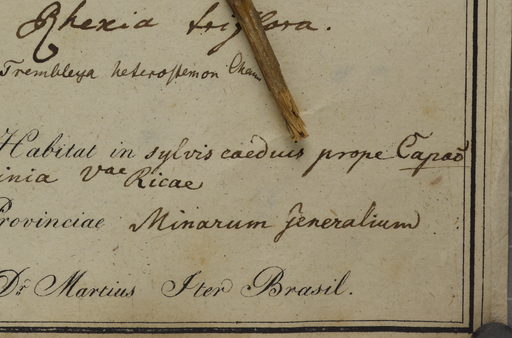 Rhexia triflora.
Trembleya heterostemon Cham
Habitat in sylvis caeduis prope Capaō
inia Vae Ricae
Provinciae Minarum Generalium
Dr. Martius Iter Brasil.